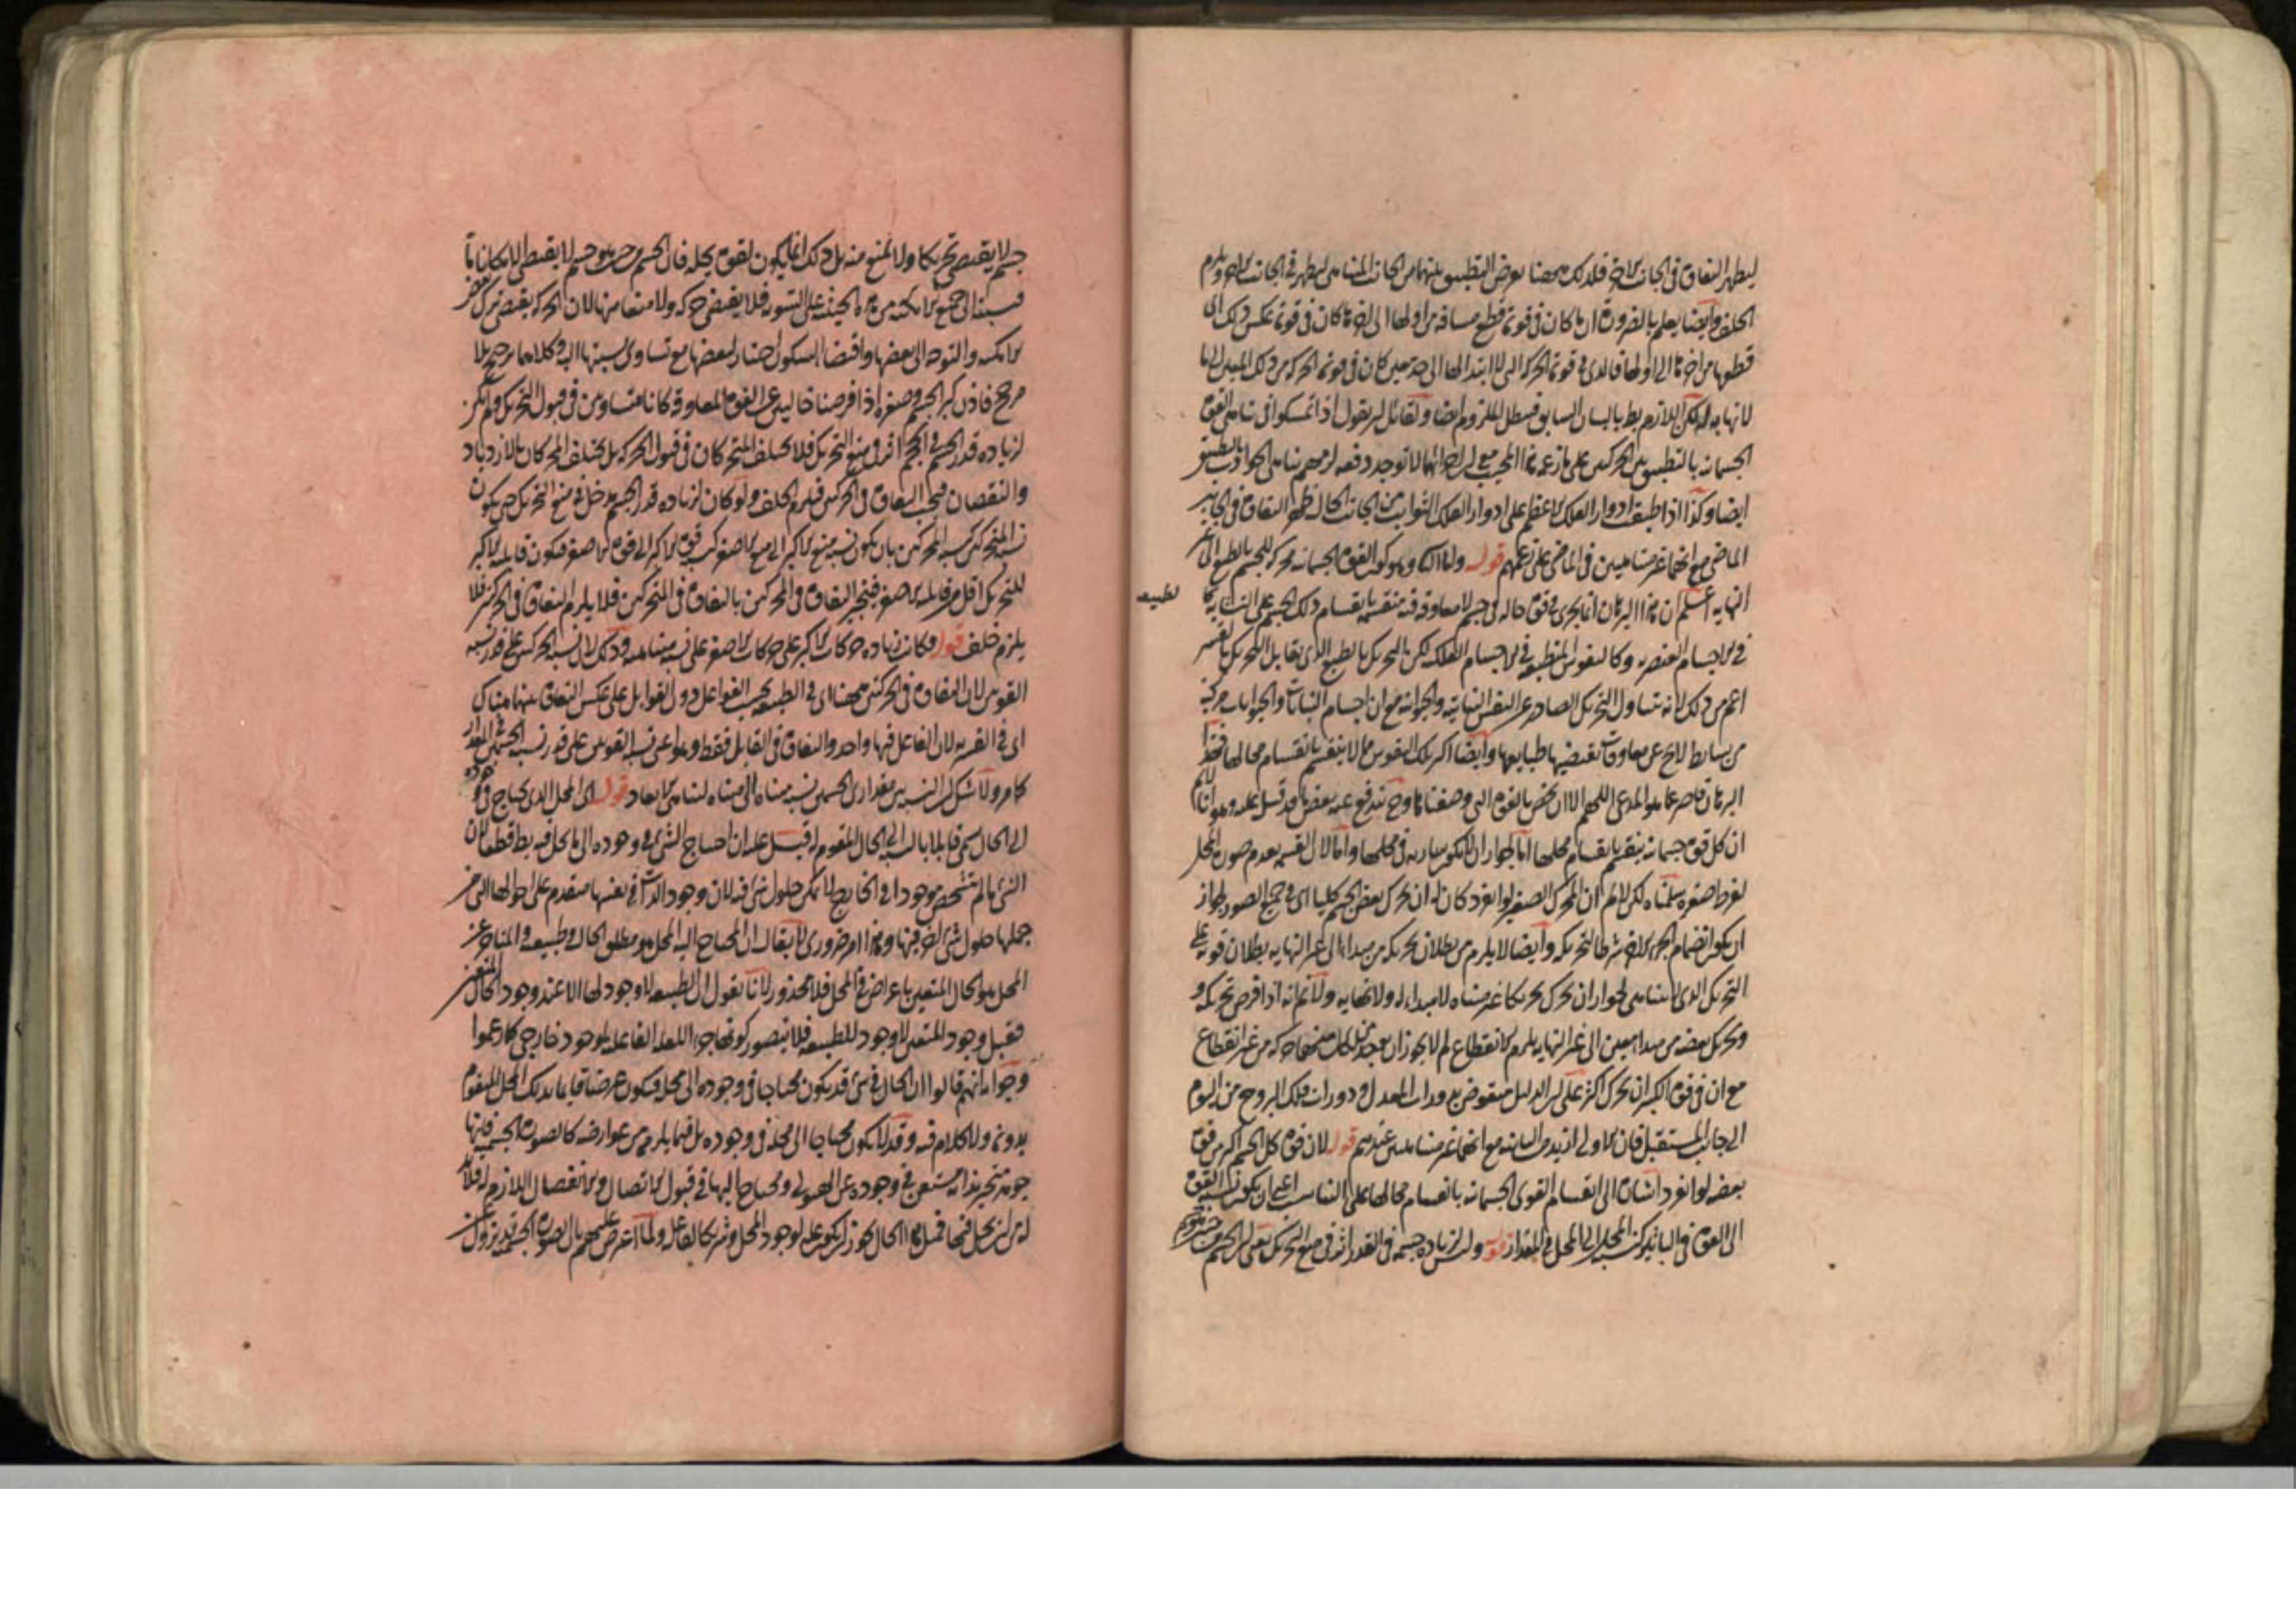 ليظهر التفاوت في الجانب الآخر فلذلك ههنا نفرض التطبيق بينهما من الجانب المتناهي ليظهر في الجانب الآخر ويلزم
الخلف وأيضا يعلم بالضرورة ان ما كان في قوته قطع مسافة من اولها الى اخرها كان في قوته عكس ذلك اى
قطعها من اخرها الى اولها فالذى في قوته الحركة التى لا ابتداء لها الى حد معين كان في قوته الحركة من ذلك المعين الى ما
لا نهاية له لكن اللازم بط بالبيان السابق فبطل الملزوم ايضا ولقائل ان يقول اذا تمسكوا في تناهى القوة
الجسمانية بالتطبيق بين الحركتين على ما زعمه هذا المجيب مع ان اجزائها لا توجد دفعة لزمهم تناهى الحوادث بالتطبيق
ايضا وكذا اذا طبقت ادوار الفلك الاعظم على ادوار الفلك الثوابت من الجانب الحال ظهر التفاوت في الجانب
الماضى مع انهما غير متناهيين في الماضى على زعمهم قوله واما الثانى وهو كون القوة الجسمانية محركة للجسم بالطبع الى غير
النهاية اعلم ان هذا البرهان انما يجرى في قوة حالة في جسم لا معاوقة فيه منقسمة بانقسام ذلك الجسم على التشابه كما
لطبيعة
في الاجسام العنصرية وكالنفوس المنطبعة في الاجسام الفلكية لكن التحريك بالطبع الذى يقابل التحريك بالقسر
اعم من ذلك لانه يتناول التحريك الصادر عن النفس النباتية والحيوانية مع ان اجسام النباتات والحيوانات مركبة
من بسايط لا يخ عن معاوقات تقتضيها طبايعها وايضا اكثر تلك النفوس مما لا ينقسم بانقسام محالها فهذا
البرهان قاصر عما هو المدعى اللهم الا ان يخص بالقوة التى وصفناها وح يندفع عنه بعض ما قد قيل عليه وهو انا لا نم
ان كل قوة جسمانية ينقسم بانقسام محلها اما لجواز ان لا يكون سارية في محلها واما لان القسمة يعدم صورة المحل
لفرط صغره سلمناه لكن لا نم ان المحرك الصغير لو انفرد كان له ان يحرك بعض الجسم كليا اى في جميع الصور لجواز
ان يكون انضمام الجزء الاخر شرطا لتحريكه وايضا لا يلزم من بطلان تحريكه من مبدأ ما الى غير النهاية بطلان قوته على
التحريك الذى لا يتناهى لجواز ان يحرك تحريكا غير متناه لا مبداء له ولا نهاية ولا نم انه اذا فرض تحريكه و
وتحريك بعضه من مبدأ معين الى غير النهاية يلزم الانقطاع لم لا يجوز ان يوجد لكل منهما حركة من غير انقطاع
مع ان في قوة الكبير ان يحرك اكثر على ان الدليل منقوض بدورات المعدل ودورات فلك البروج من اليوم
الى جانب المستقبل فان الاولى ازيد من الثانية مع انهما غير متناهيين عندهم قوله لان قوة كل الجسم اكبر من قوة
بعضه لو انفرد اشارة الى انقسام القوى الجسمانية بانقسام محالها على التناسب اعنى ان يكون نسبة القوة
الى القوة في التأثير كنسبة المحل الى المحل في المقدار قوله وليس زيادة جسمه في القدر اثر في منع التحريك يعنى ان الجسم من حيث هو
جسم لا يقتضى تحريكا ولا يمنع منه بل ذلك انما يكون لقوة تحله فان الجسم من حيث هو جسم لا يقتضى الا مكانا ما
نسبته الى جميع الامكنة من هذه الحيثية على السوية فلا يقتضى حركة ولا مانعا منها لان الحركة يقتضى ترك بعض
الامكنة والتوجه الى بعضها واقتضاء السكون اختيار لبعضها مع تساوى نسبتها اليه وكلاهما ترجيح بلا
مرجح فاذن كبر الجسم وصغره اذا فرضنا خاليين عن القوة المعاوقة كانا متساويين في قبول التحريك ولم يكن
لزيادة قدر الجسم في الحجم اثر في منع التحريك فلا يختلف المتحركان في قبول الحركة بل يختلف المحركان بالازدياد
والنقصان فيجب التفاوت في الحركتين فيلزم الخلف ولو كان لزيادة قدر الجسم مدخل في منع التحريك حتى يكون
نسبة المتحركين كنسبة المحركين بان يكون نسبة منع الاكبر الى منع الاصغر كنسبة قوة الاكبر الى قوة الاصغر فيكون قابلية الاكبر
للتحريك اقل من قابلية الاصغر فينجبر التفاوت في المحركين بالتفاوت في المتحركين فلا يلزم التفاوت في الحركتين فلا
يلزم خلف قوله فكانت زيادة حركات الاكبر على حركات الاصغر على نسبة متناهية وذلك لان نسبة الحركتين على قدر نسبة
القوتين لان التفاوت في الحركتين ههنا اى في الطبيعية بحسب الفواعل دون القوابل على عكس التفاوت بينهما هناك
اى في القسرية لان الفاعل فيها واحد والتفاوت في القابل فقط وهو اعنى نسبة القوتين على قدر نسبة الجسمين في المقدار
كما مر ولا شك ان النسبة بين مقدارى الجسمين نسبة متناه الى متناه لتناهى الابعاد قوله اى المحل الذى يحتاج في وجوده
الى الحال سمى قابلا بالنسبة الى الحال المقوم له قيل عليه ان احتياج الشئ في وجوده الى ما يحل فيه بط قطعا لان
الشئ ما لم يتشخص موجودا في الخارج لا يمكن حلول شئ فيه لان وجود الذات في نفسها متقدم على احوالها التى من
جملتها حلول شئ اخر فيها وهذا امر ضرورى لا يقال ان المحتاج اليه المحل هو مطلق الحال وطبيعته والمتأخر عن
المحل هو الحال المتعين باعراض في المحل فلا محذور لانا نقول ان الطبيعة لا وجود لها الا عند وجود الحال المتعين
فقبل وجود المتعين لا وجود للطبيعة فلا يتصور كونها جزءا للعلة الفاعلية لوجود خارجى كما زعموا
وجوابه انهم قالوا ان الحال في شئ قد يكون محتاجا في وجوده الى محله فيكون عرضا قايما بذلك المحل المتقوم
بدونه ولا كلام فيه وقد لا يكون محتاجا الى محله في وجوده بل فيما يلزمه من عوارضه كالصورة الجسمية فانها
جوهر متحيز بذاته مستغن في وجوده عن الهيولى ومحتاج اليها في قبول الاتصال والانفصال اللازم له فلا بد
له من ان يحل فيها فمثل هذا الحال يجوز ان يكون علة لوجود المحل وشريكا لفاعله ولما اعترض عليهم بان الصورة الجسمية قد يزول عن